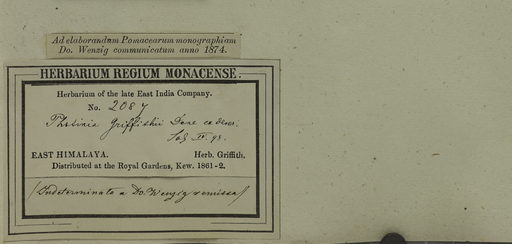 Ad elaborandum Pomacearum monographiam
Do. Wenzig communicatum anno 1874.
HERBARIUM REGIUM MONACENSE.
Herbarium of the late East India Company.
No. 2087
Photinia Griffithii Dcne
IV. 98.
EAST HIMALAYA. Herb. Griffith.
Distributed at the Royal Gardens, Kew. 1861-2.
(Indeterminata a Do. Wenzig remissa)